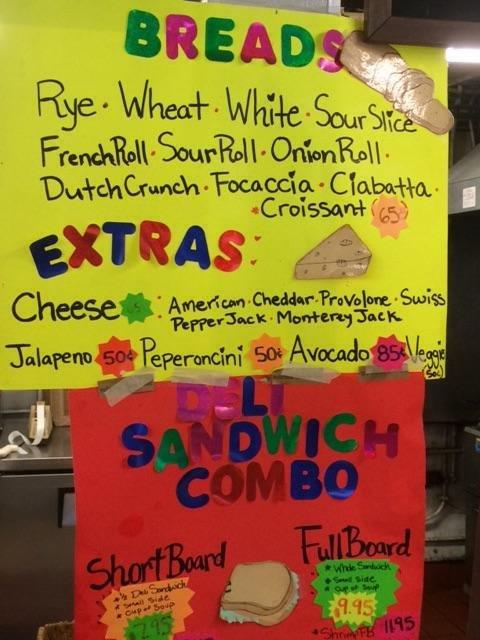 BREADS
Rye · Wheat · White · Sour Slice
French Roll · Sour Roll · Onion Roll ·
Dutch Crunch · Focaccia · Ciabatta ·
· Croissant 65¢
EXTRAS
Cheese : American · Cheddar · Provolone · Swiss
Pepper Jack · Monterey Jack
Jalapeno 50¢ Peperoncini 50¢ Avocado 85¢ Veggie
(50¢)
DELI
SANDWICH
COMBO
Short Board
* ½ Deli Sandwich
* Small Side
* Cup of Soup
7.95
Full Board
* Whole Sandwich
* Small Side
* Cup of Soup
9.95
* Shrimp FB 11.95